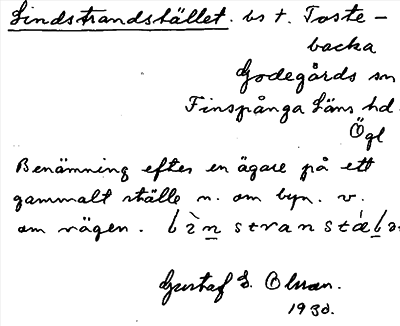 Lindstrandstället. bs t. Toste-
backa
Godegårds sn
Finspånga Läns hd.
Ögl
Benämning efter en ägare på ett
gammalt ställe n. om byn. v.
om vägen.
Gustaf E. Olsson.
1930.